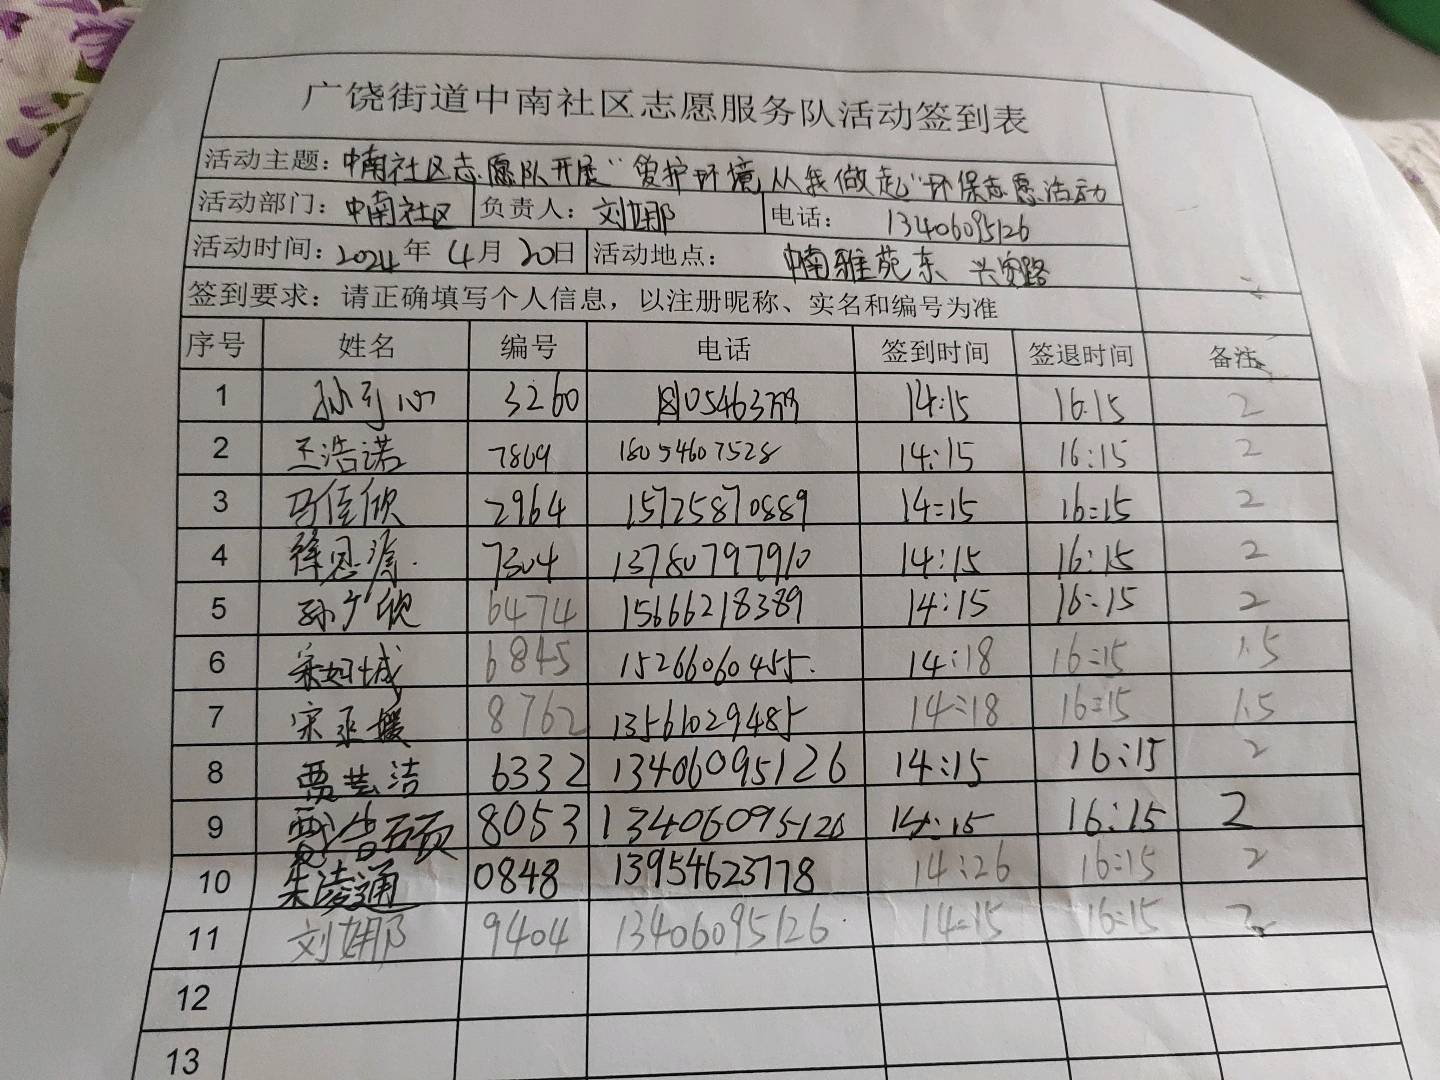 广饶街道中南社区志愿服务队活动签到表
活动主题：中南社区志愿队开展“爱护环境,从我做起”环保志愿活动
活动部门：中南社区 负责人：刘娜 电话：13406095126
活动时间：2024年4月20日 活动地点：中南雅苑东 兴安路
签到要求：请正确填写个人信息，以注册昵称、实名和编号为准
序号 姓名 编号 电话 签到时间 签退时间 备注
1 3260 14:15 16:15 2
2 王浩诺 7869 18054607528 14:15 16:15 2
3 马佳欣 2964 15725870889 14:15 16:15 2
4 徐恩源 7304 13780797910 14:15 16:15 2
5 孙广欣 6474 15666218389 14:15 16:15 2
6 宋如城 6845 15266060455 14:18 16:15 1.5
7 宋丞媛 8762 13561029485 14:18 16:15 1.5
8 贾芸洁 6332 13406095126 14:15 16:15 2
9 8053 13406095126 14:15 16:15 2
10 朱凌通 0848 13954623778 14:26 16:15 2
11 刘娜 9404 13406095126 14:15 16:15 2
12
13